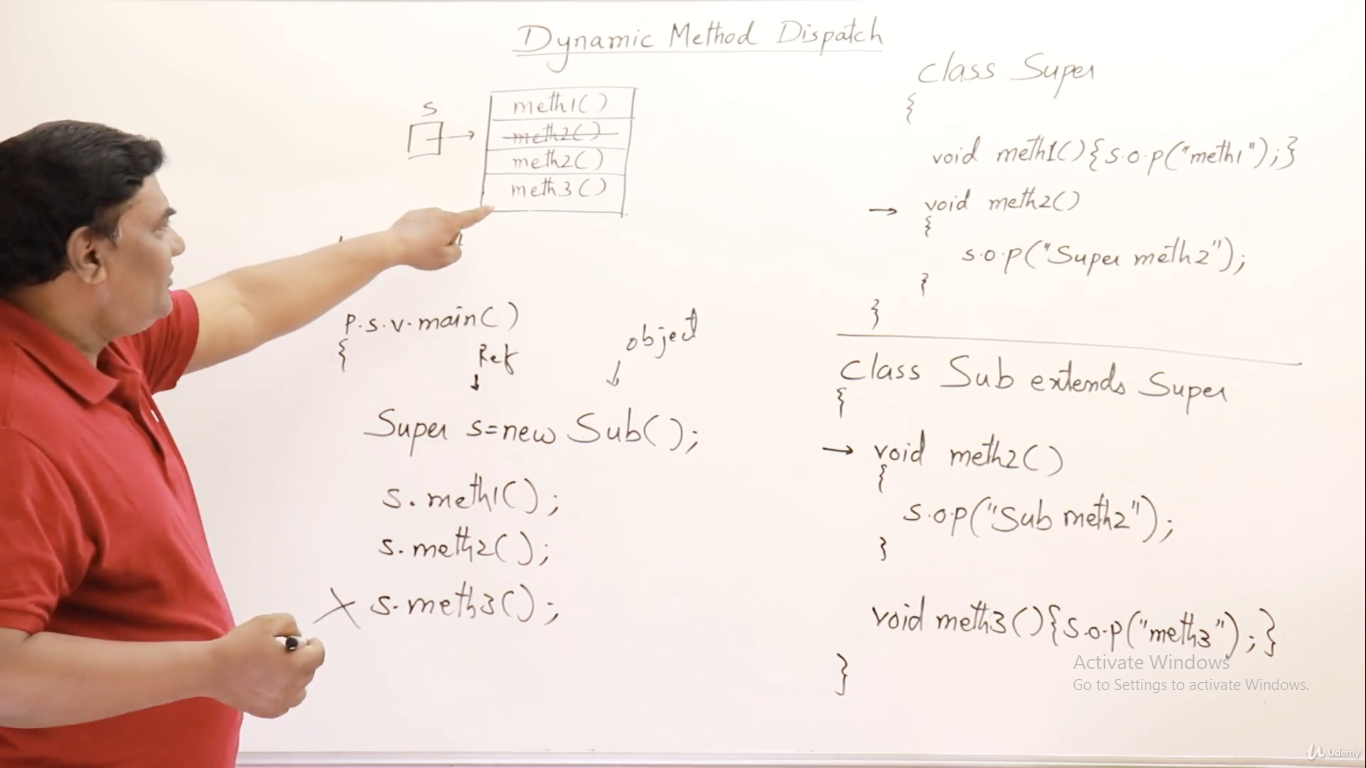 Dynamic Method Dispatch
s
meth1()
meth2()
meth2()
meth3()
p.s.v.main()
{
Ref
object
Super s=new Sub();
s.meth1();
s.meth2();
X s.meth3();
class Super
{
void meth1(){s.o.p("meth1");}
→ void meth2()
{
s.o.p("Super meth2");
}
}
class Sub extends Super
{
→ void meth2()
{
s.o.p("Sub meth2");
}
void meth3(){s.o.p("meth3");}
}
Activate Windows
Go to Settings to activate Windows.
Udemy